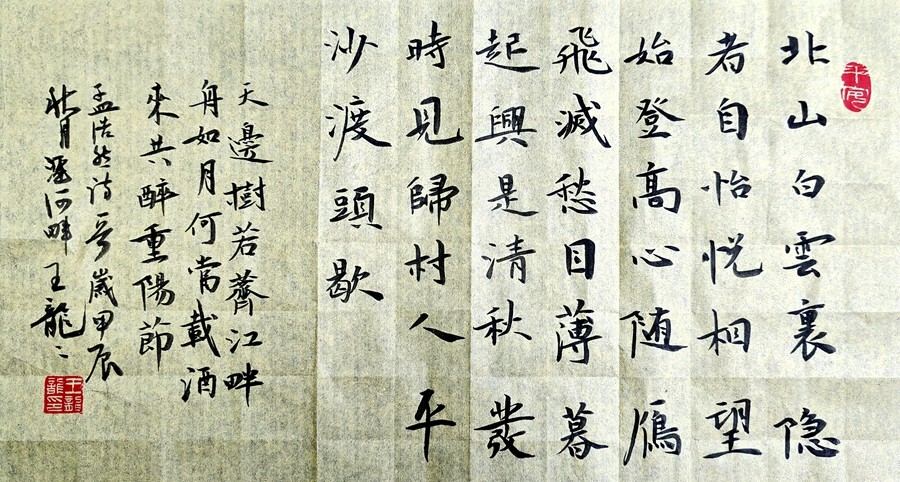 平安
北山白雲裏隐
者自怡悦相望
始登高心随鴈
飛滅愁目薄暮
起興是清秋發
時見歸村人平
沙渡頭歇
天邊樹若薺江畔
舟如月何常載酒
來共醉重陽節
孟浩然诗 歲甲辰
秋月 河畔王龍